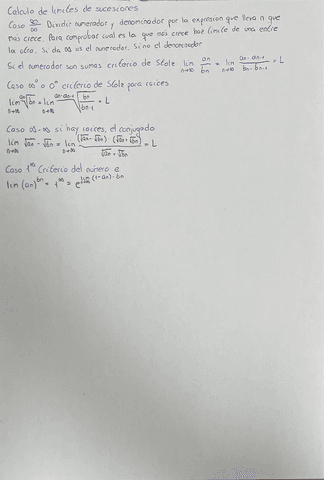 Calculo de limites de sucesiones
Caso ∞/∞ Dividir numerador y denominador por la expresion que lleva n que
mas crece. Para comprobar cual es la que mas crece haz limite de una entre
la otra. Si da ∞ es el numerador. Si no el denominador
Si el numerador son sumas criterio de Stole lim n→∞ an/bn = lim n→∞ (an-an-1)/(bn-bn-1) = L
Caso ∞⁰ o 0⁰ criterio de Stole para raices
lim n→∞ ᵃⁿ√bn = lim n→∞ ᵃⁿ⁻ᵃⁿ⁻¹√(bn/bn-1) = L
Caso ∞-∞ si hay raices, el conjugado
lim n→∞ √an - √bn = lim n→∞ (√an - √bn)·(√an + √bn)/(√an + √bn) = L
Caso 1^∞ Criterio del número e
lim (an)^bn = 1^∞ = e^lim n→∞ (1-an)·bn